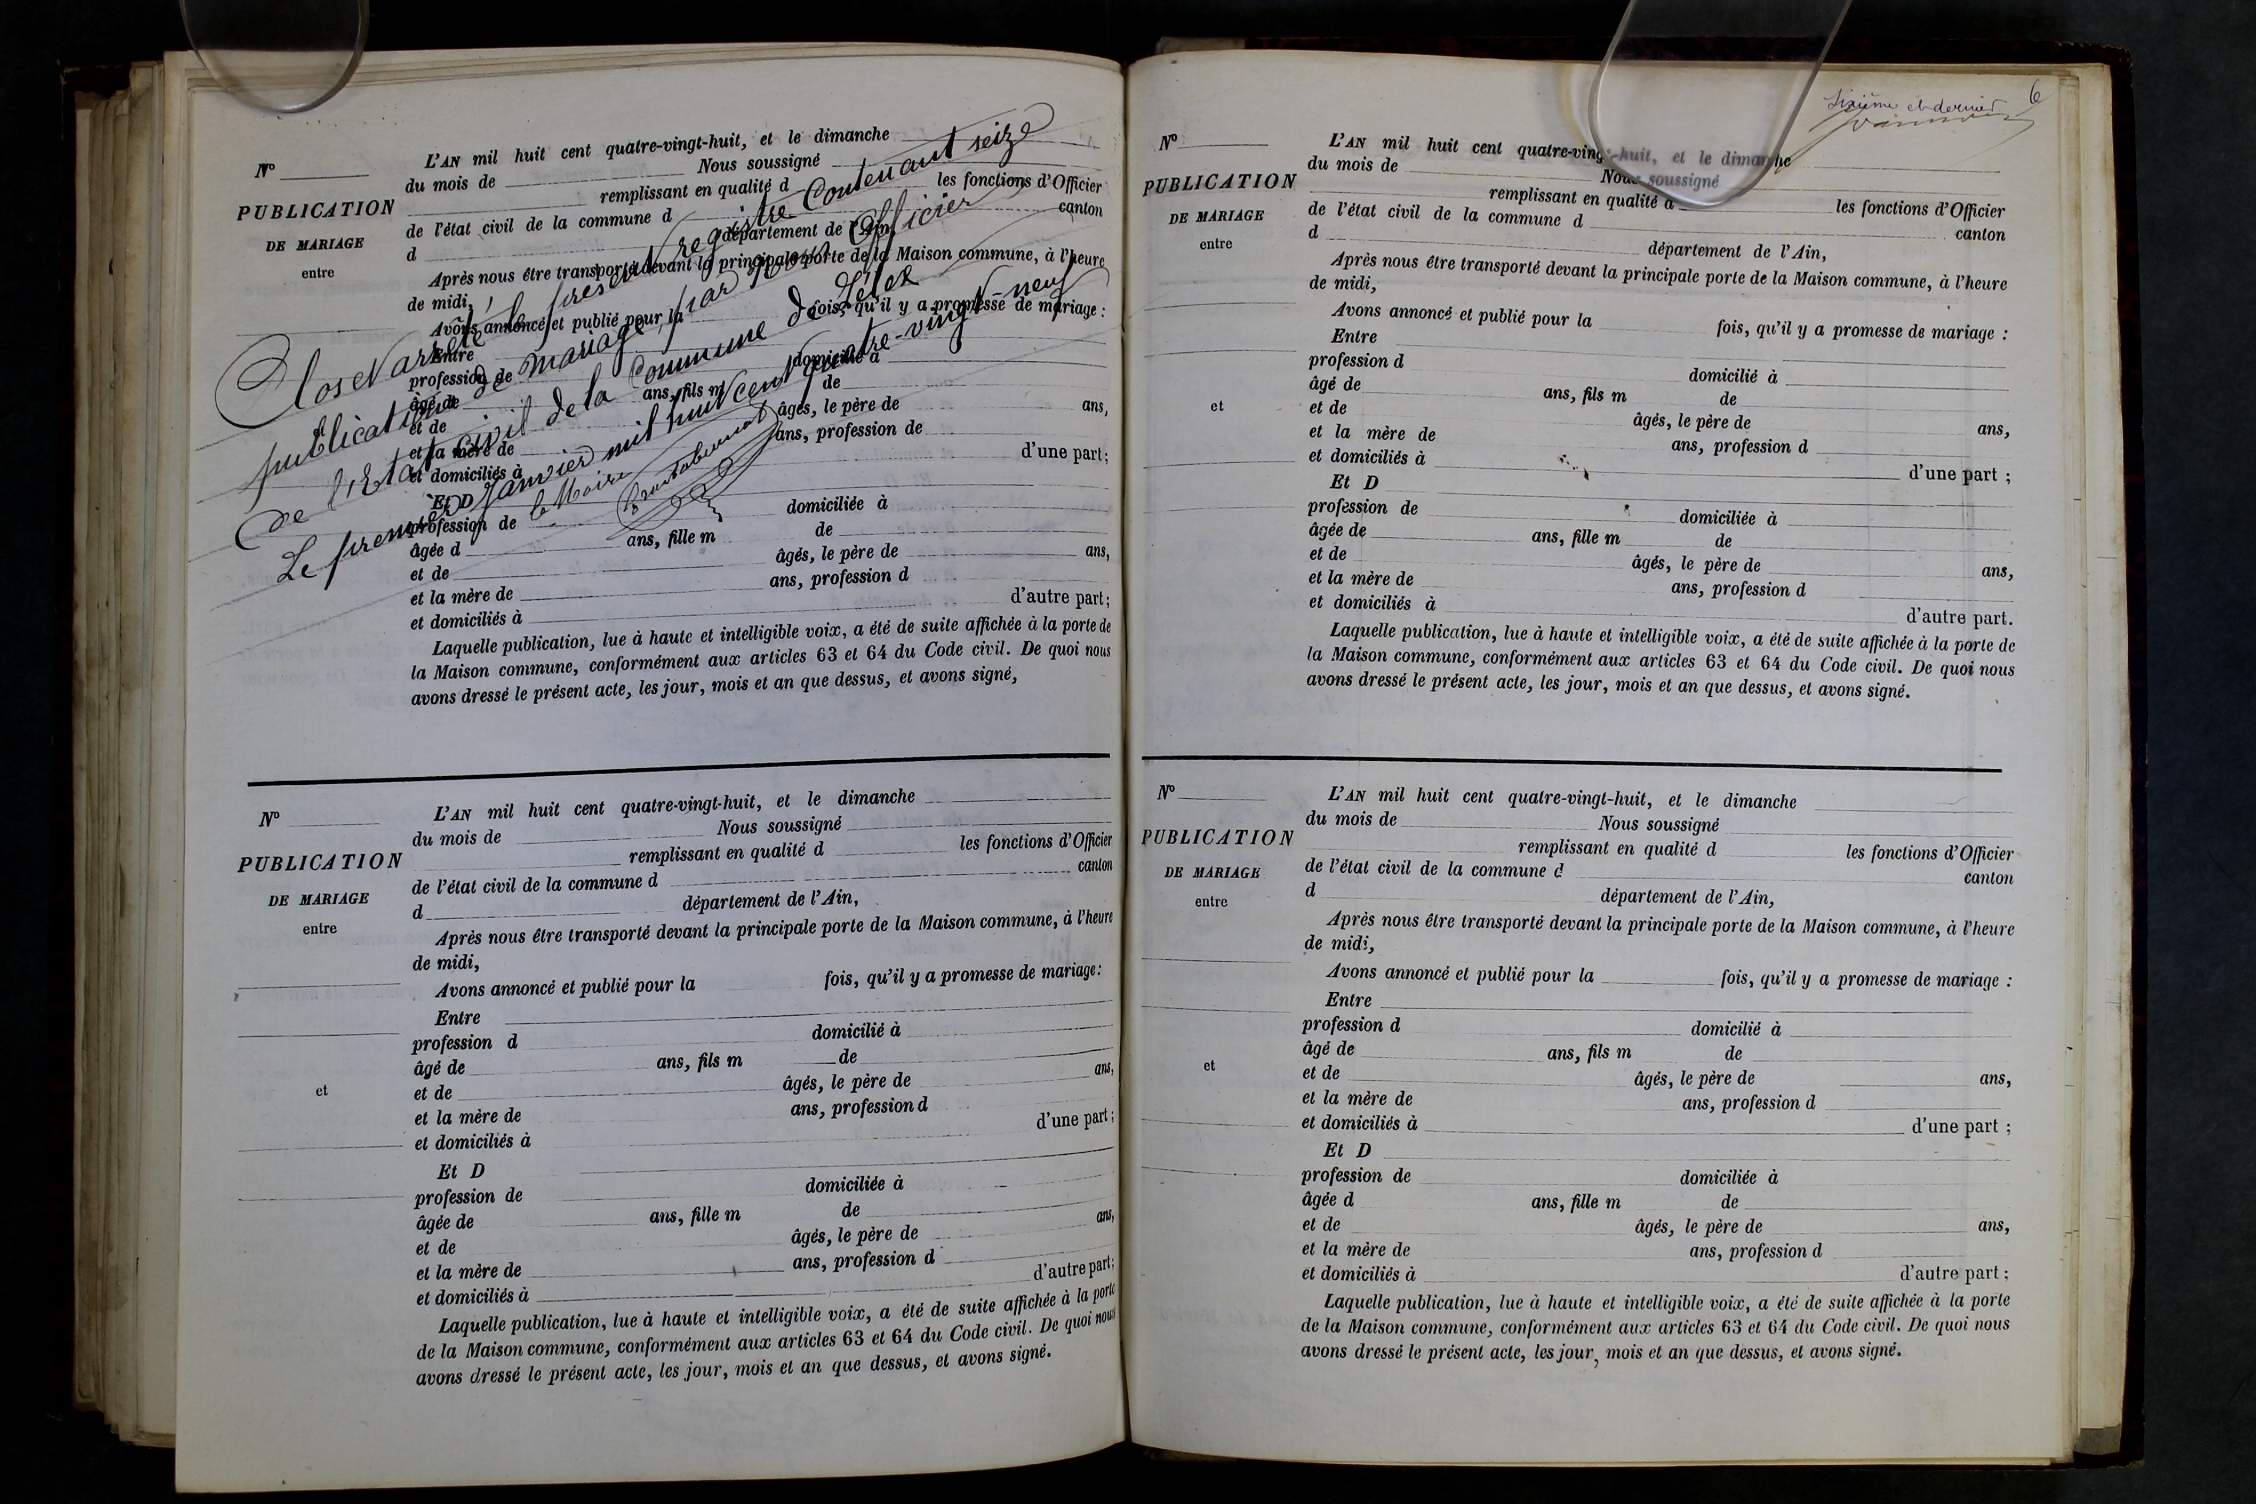 N°
PUBLICATION
DE MARIAGE
entre
L'AN mil huit cent quatre-vingt-huit, et le dimanche
du mois de Nous soussigné
remplissant en qualité d les fonctions d'Officier
de l'état civil de la commune d canton
d département de l'Ain,
Après nous être transporté devant la principale porte de la Maison commune, à l'heure
de midi,
Avons annoncé et publié pour la fois, qu'il y a promesse de mariage :
Entre
profession de domicilié à
âgé de ans, fils m de
et de âgés, le père de ans,
et la mère de ans, profession de
et domiciliés à d'une part ;
Et D
profession de domiciliée à
âgée d ans, fille m de
et de âgés, le père de ans,
et la mère de ans, profession d
et domiciliés à d'autre part ;
Laquelle publication, lue à haute et intelligible voix, a été de suite affichée à la porte de
la Maison commune, conformément aux articles 63 et 64 du Code civil. De quoi nous
avons dressé le présent acte, les jour, mois et an que dessus, et avons signé,
Clos et arrêté le présent registre contenant seize
publications de mariage, par nous Officier
de l'Etat civil de la Commune de Lélex
Le premier Janvier mil huit cent quatre-vingt-neuf
le Maire
N°
PUBLICATION
DE MARIAGE
entre
et
L'AN mil huit cent quatre-vingt-huit, et le dimanche
du mois de Nous soussigné
remplissant en qualité d les fonctions d'Officier
de l'état civil de la commune d canton
d département de l'Ain,
Après nous être transporté devant la principale porte de la Maison commune, à l'heure
de midi,
Avons annoncé et publié pour la fois, qu'il y a promesse de mariage :
Entre
profession d domicilié à
âgé de ans, fils m de
et de âgés, le père de ans,
et la mère de ans, profession d
et domiciliés à d'une part ;
Et D
profession de domiciliée à
âgée de ans, fille m de
et de âgés, le père de ans,
et la mère de ans, profession d
et domiciliés à d'autre part ;
Laquelle publication, lue à haute et intelligible voix, a été de suite affichée à la porte
de la Maison commune, conformément aux articles 63 et 64 du Code civil. De quoi nous
avons dressé le présent acte, les jour, mois et an que dessus, et avons signé.
Sixième et dernier 6
N°
PUBLICATION
DE MARIAGE
entre
et
L'AN mil huit cent quatre-vingt-huit, et le dimanche
du mois de Nous soussigné
remplissant en qualité d les fonctions d'Officier
de l'état civil de la commune d canton
d département de l'Ain,
Après nous être transporté devant la principale porte de la Maison commune, à l'heure
de midi,
Avons annoncé et publié pour la fois, qu'il y a promesse de mariage :
Entre
profession d domicilié à
âgé de ans, fils m de
et de âgés, le père de ans,
et la mère de ans, profession d
et domiciliés à d'une part ;
Et D
profession de domiciliée à
âgée de ans, fille m de
et de âgés, le père de ans,
et la mère de ans, profession d
et domiciliés à d'autre part.
Laquelle publication, lue à haute et intelligible voix, a été de suite affichée à la porte de
la Maison commune, conformément aux articles 63 et 64 du Code civil. De quoi nous
avons dressé le présent acte, les jour, mois et an que dessus, et avons signé.
N°
PUBLICATION
DE MARIAGE
entre
et
L'AN mil huit cent quatre-vingt-huit, et le dimanche
du mois de Nous soussigné
remplissant en qualité d les fonctions d'Officier
de l'état civil de la commune d canton
d département de l'Ain,
Après nous être transporté devant la principale porte de la Maison commune, à l'heure
de midi,
Avons annoncé et publié pour la fois, qu'il y a promesse de mariage :
Entre
profession d domicilié à
âgé de ans, fils m de
et de âgés, le père de ans,
et la mère de ans, profession d
et domiciliés à d'une part ;
Et D
profession de domiciliée à
âgée d ans, fille m de
et de âgés, le père de ans,
et la mère de ans, profession d
et domiciliés à d'autre part ;
Laquelle publication, lue à haute et intelligible voix, a été de suite affichée à la porte
de la Maison commune, conformément aux articles 63 et 64 du Code civil. De quoi nous
avons dressé le présent acte, les jour, mois et an que dessus, et avons signé.